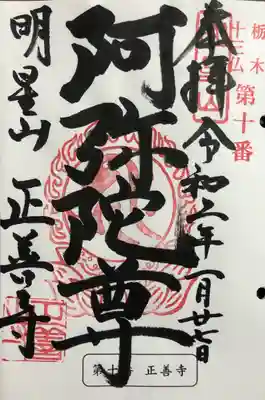 栃木
十三仏
第十番
奉拝 令和二年一月廿七日
阿弥陀尊
明星山 正善寺
正善寺